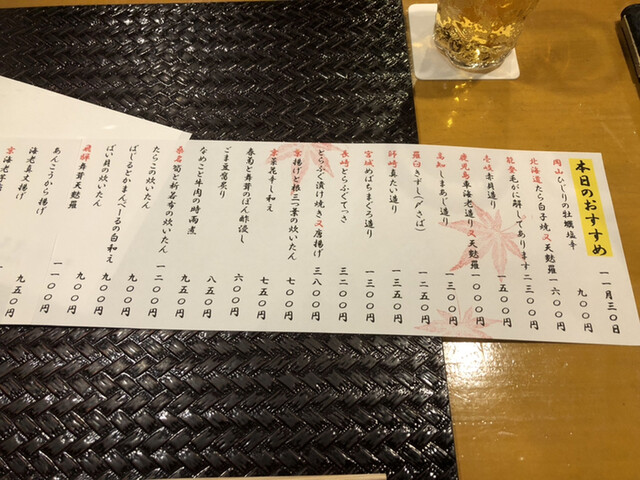 本日のおすすめ
十一月三〇日
岡山ひじりの牡蠣塩辛 九〇〇円
北海道たら白子焼又天麩羅 一六〇〇円
能登毛がに解してあります 二三〇〇円
壱岐赤貝造り 一五〇〇円
鹿児島車海老造り又天麩羅 一〇〇〇円
高知しまあじ造り 一三〇〇円
羅臼きずし(〆さば) 一二五〇円
師崎真たい造り 一三五〇円
宮城めばちまぐろ造り 一三〇〇円
長崎とらふぐてっさ 三二〇〇円
とらふぐ漬け焼き又唐揚げ 三八〇〇円
揚げと根三つ葉の炊いたん 七〇〇円
京菜花辛し和え 七五〇円
春菊と舞茸のぽん酢浸し 七五〇円
ごま豆腐炙り 六〇〇円
なめこと牛肉の時雨煮 八五〇円
桑名筍と新若布の炊いたん 九五〇円
たらこの炊いたん 一二〇〇円
ばじるとかまんべーるの白和え 九〇〇円
ばい貝の炊いたん 九〇〇円
飛騨舞茸天麩羅 九〇〇円
あんこうから揚げ 一一〇〇円
海老真丈揚げ 九五〇円
京海老芋